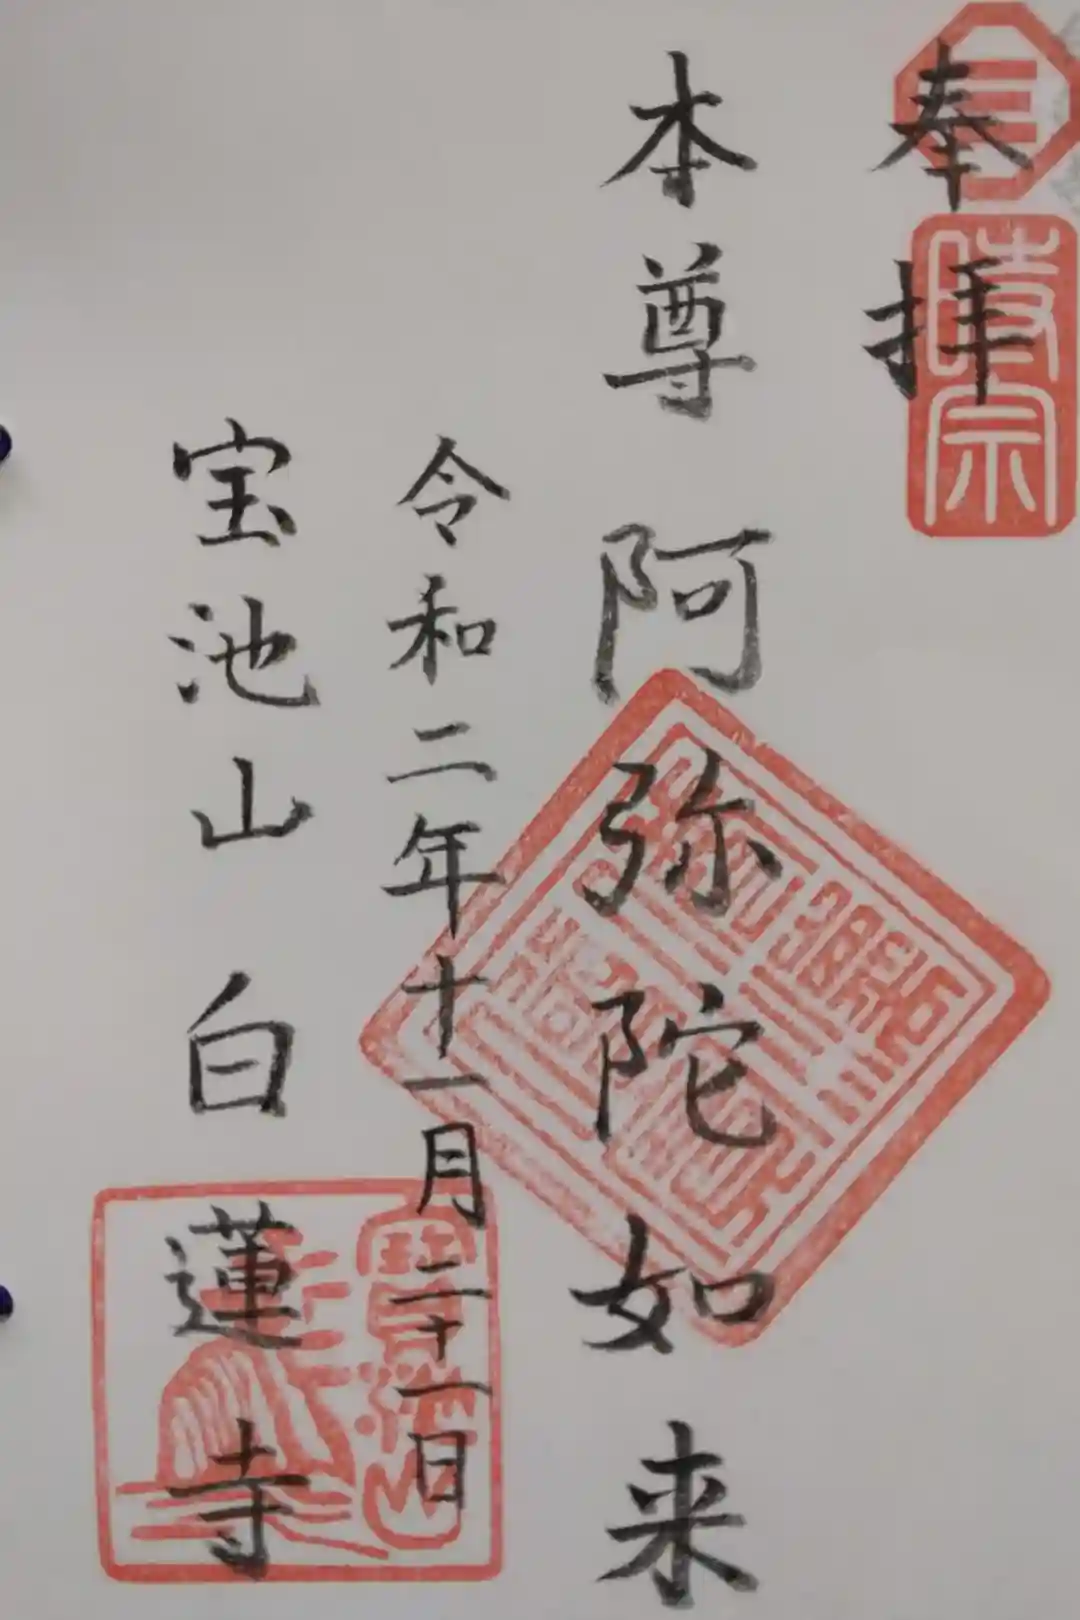 奉拝
時宗
本尊阿弥陀如来
令和二年十一月二十一日
宝池山白蓮寺